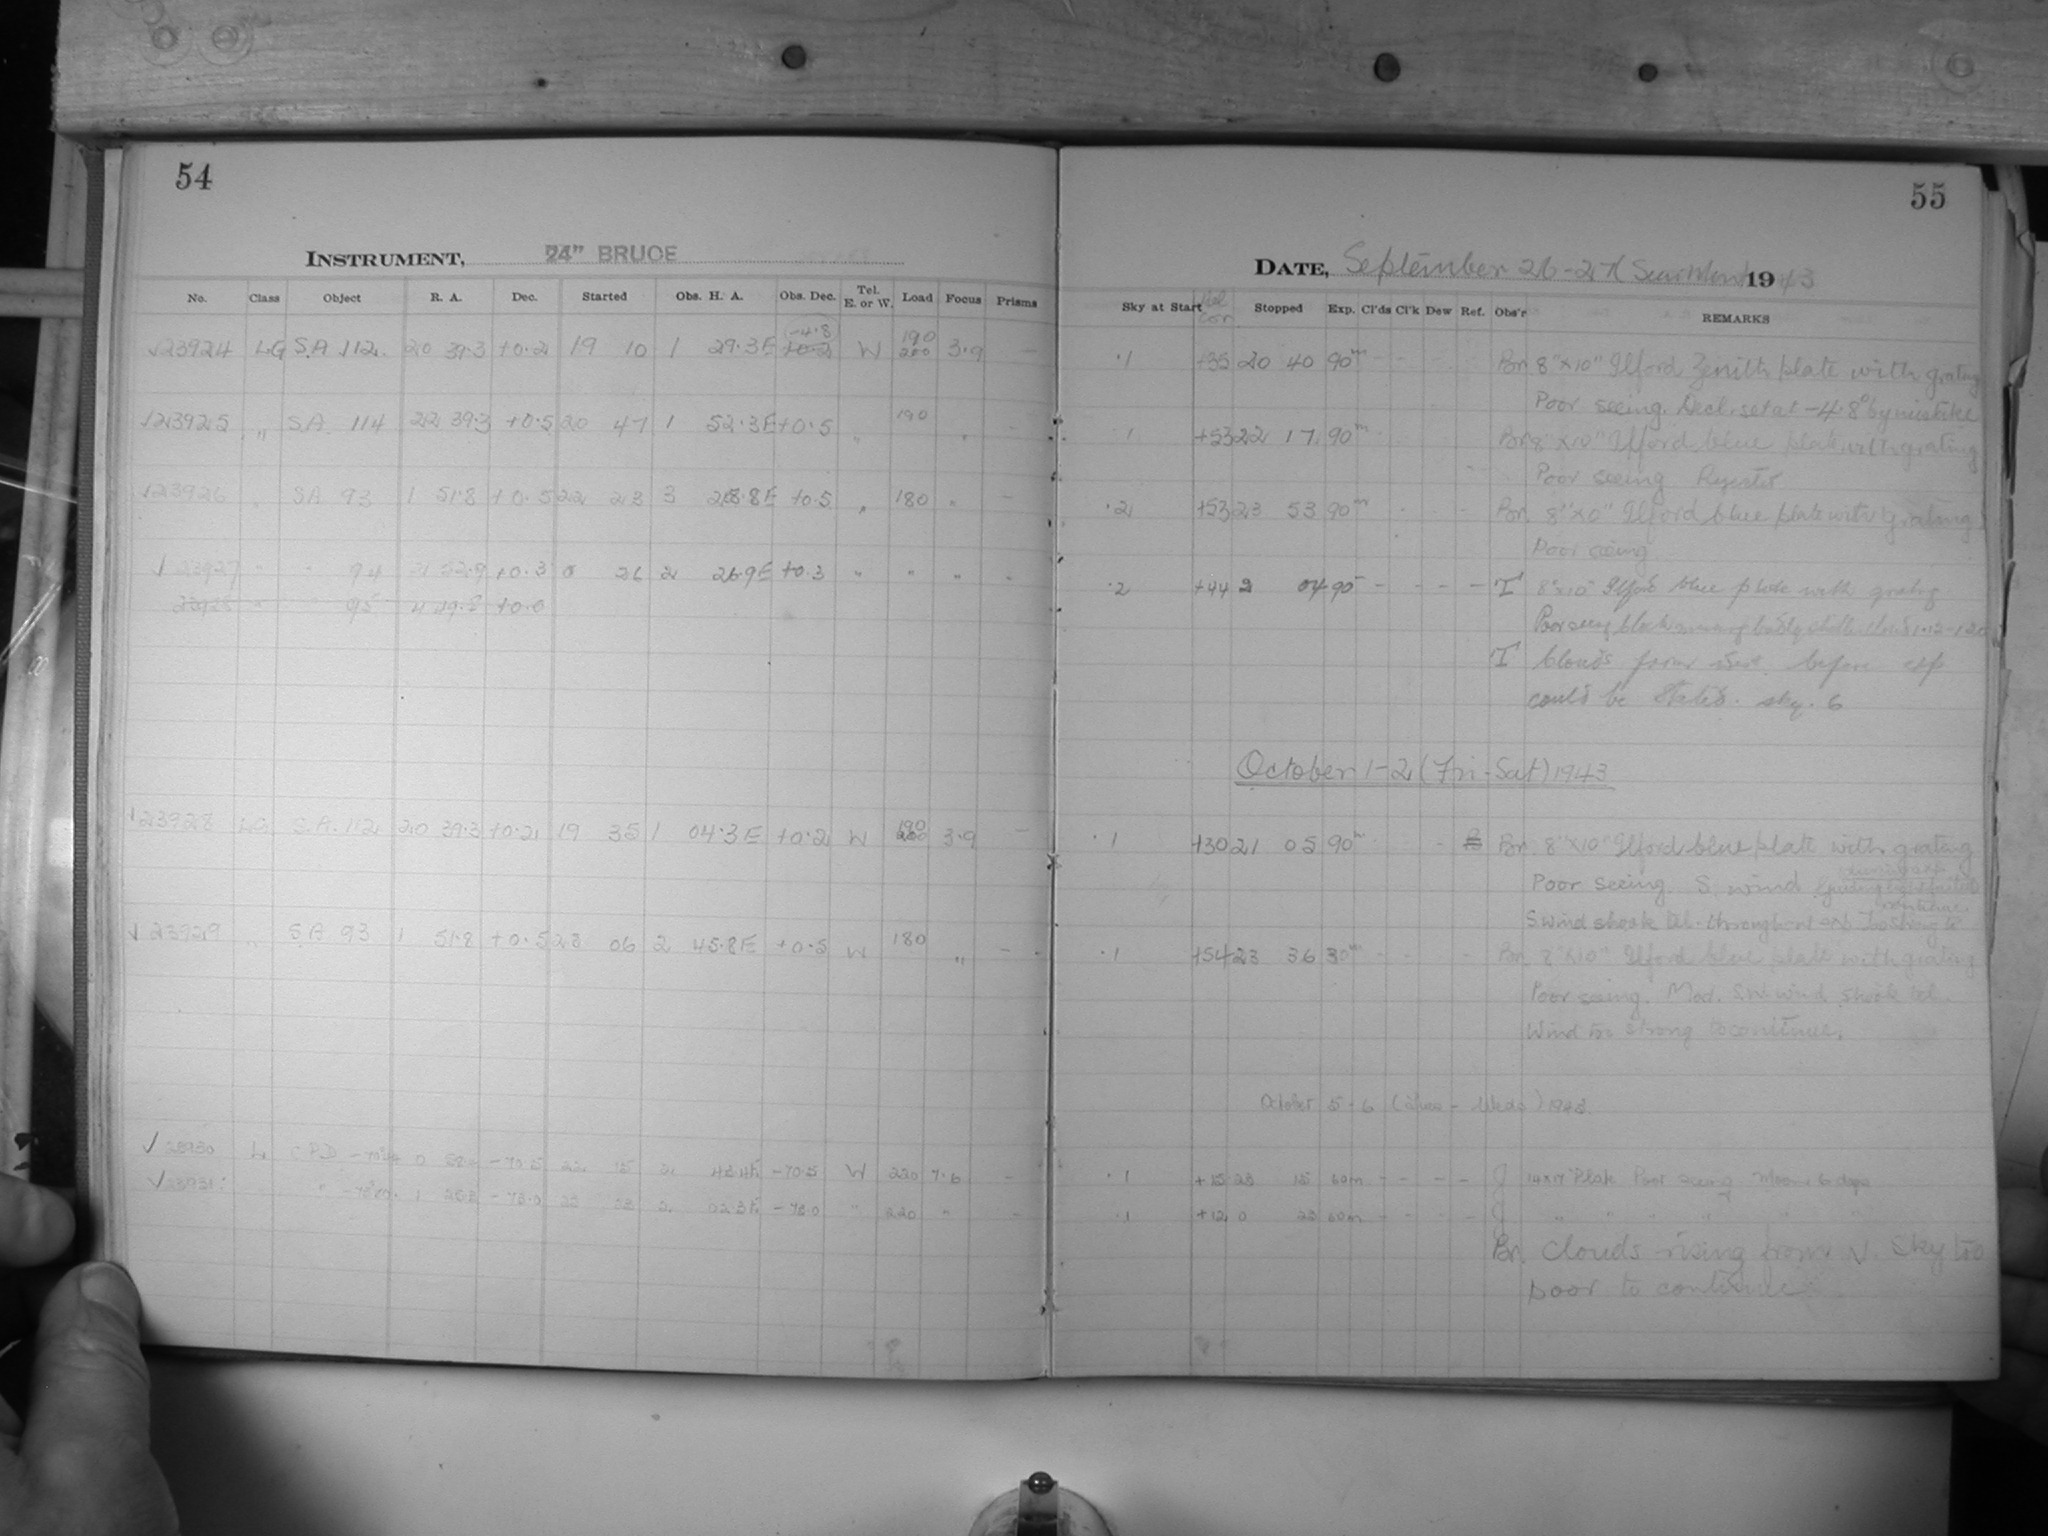 54
INSTRUMENT, 24" BRUCE
No. Class Object R. A. Dec. Started Obs. H. A. Obs. Dec. Tel. E. or W. Load Focus Prisms
-4.8 190
√23924 LG S.A 112. 20 39.3 +0.2 19 10 1 29.3E +0.2 W 200 3.9 —
√23925 " S.A. 114 22 39.3 +0.5 20 47 1 52.3E +0.5 " 190 "
23926 " SA 93 1 51.8 +0.5 22 23 3 28.8E +0.5 " 180 " —
√ 23927 " " 94 2 52.9 +0.3 0 26 2 26.9E +0.3 " " " "
23928 " " 95
190
23928 LG S.A. 112 20 39.3 +0.2 19 35 1 04.3E +0.2 W 200 3.9 —
√ 23929 " S.A 93 1 51.8 +0.5 23 06 2 45.8E +0.5 W 180 " —
√ 23930 L CPD 0 -70.5 22 15 -70.5 W 220 7.6 —
√ 23931 " 1 -73.0 -73.0 " 220 " —
55
DATE, September 26-27 (Sun-Mon) 1943
Sky at Start Stopped Exp. Cl'ds Cl'k Dew Ref. Obs'r REMARKS
.1 +35 20 40 90m Br. 8"x10" Ilford Zenith plate with grating
Poor seeing. Decl. set at -4.8° by mistake
.1 +53 22 17 90m Br. 8"x10" Ilford blue plate with grating
Poor seeing
.2 +53 23 53 90m Br. 8"x10" Ilford blue plate with grating
Poor seeing
.2 +44 2 04 90 - - - - T 8"x10" Ilford blue plate with grating
Poor seeing
T Clouds from before exp
could be started. sky. 6
October 1-2 (Fri-Sat) 1943
.1 +30 21 05 90m Br. 8"x10" Ilford blue plate with grating
Poor seeing. S. wind
S wind shook tel. throughout exp Too strong to continue
.1 +54 23 36 30m Br. 8"x10" Ilford blue plate with grating
Poor seeing. Mod. wind shook tel.
Wind too strong to continue.
October 5-6 (Tues - Weds) 1943.
.1 +15 23 15 60m - - - - J 14x17 Plate Poor seeing Moon 6 days
.1 +12 0 23 60m - - - - J " " " " " "
Br. Clouds rising from N. Sky too
poor to continue